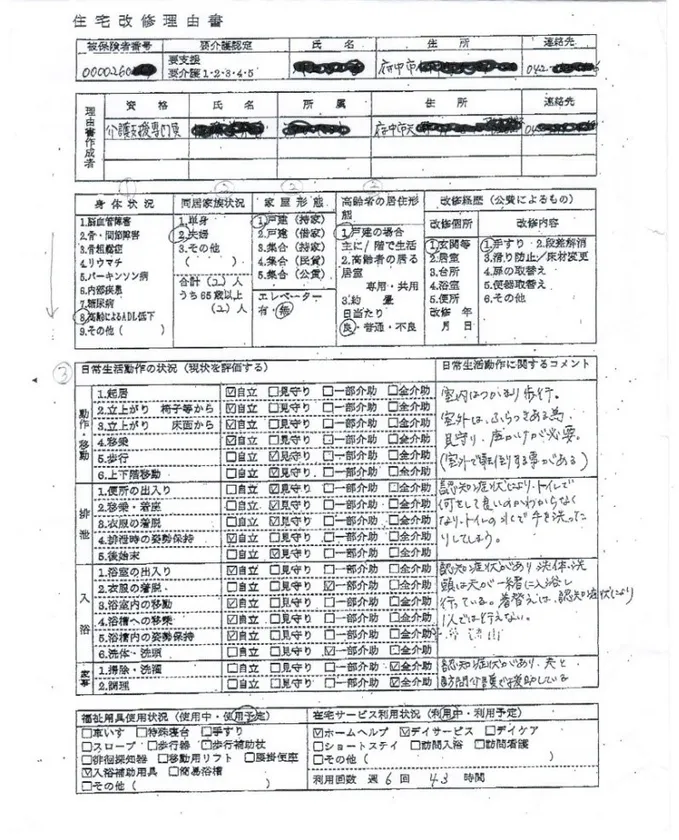 住宅改修理由書
被保険者番号 要介護認定 氏名 住所 連絡先
0000260 要支援 要介護1・2・3・4・5 府中市 042
理由書作成者
資格 氏名 所属 住所 連絡先
介護支援専門員 府中市
① 身体状況
1.脳血管障害
2.骨・関節障害
3.脊椎損症
4.リウマチ
5.パーキンソン病
6.内部疾患
7.糖尿病
8.高齢によるADL低下
9.その他( )
② 同居家族状況
1.単身
2.夫婦
3.その他
( )
合計(2)人
うち65歳以上
(2)人
② 家屋形態
1.戸建(持家)
2.戸建(借家)
3.集合(持家)
4.集合(民賃)
5.集合(公賃)
エレベーター
有・無
② 高齢者の居住形態
1.戸建の場合
主に1階で生活
2.高齢者の居る居室
専用・共用
3.約 畳
日当たり
良・普通・不良
改修経歴(公費によるもの)
改修個所 改修内容
1.玄関等
2.居室
3.台所
4.浴室
5.便所
改修 年
月 日
1.手すり 2.段差解消
3.滑り防止/床材変更
4.扉の取替え
5.便器取替え
6.その他
③ 日常生活動作の状況(現状を評価する) 日常生活動作に関するコメント
動作・移動
1.起居 ☑自立 □見守り □一部介助 □全介助
2.立上がり 椅子等から ☑自立 □見守り □一部介助 □全介助
3.立上がり 床面から ☑自立 □見守り □一部介助 □全介助
4.移乗 ☑自立 □見守り □一部介助 □全介助
5.歩行 □自立 ☑見守り □一部介助 □全介助
6.上下階移動 □自立 ☑見守り □一部介助 □全介助
室内はつかまり歩行。
室外は、ふらつきある為
見守り、声かけが必要。
(室外で転倒する事がある)
排泄
1.便所の出入り □自立 ☑見守り □一部介助 □全介助
2.移乗・着座 □自立 ☑見守り □一部介助 □全介助
3.衣服の着脱 □自立 ☑見守り □一部介助 □全介助
4.排泄時の姿勢保持 ☑自立 □見守り □一部介助 □全介助
5.後始末 □自立 ☑見守り □一部介助 □全介助
認知症状により、トイレで
何をして良いのかわからなく
なり、トイレの水で手を洗った
りしてしまう。
入浴
1.浴室の出入り ☑自立 □見守り □一部介助 □全介助
2.衣服の着脱 □自立 □見守り ☑一部介助 □全介助
3.浴室内の移動 ☑自立 □見守り □一部介助 □全介助
4.浴槽への移乗 ☑自立 □見守り □一部介助 □全介助
5.浴槽内の姿勢保持 ☑自立 □見守り □一部介助 □全介助
6.洗体・洗頭 □自立 □見守り ☑一部介助 □全介助
認知症状があり洗体、洗
頭は夫が一緒に入浴し
行っている。着替えは、認知症状により
1人では行えない。
家事
1.掃除・洗濯 □自立 □見守り □一部介助 ☑全介助
2.調理 □自立 □見守り □一部介助 ☑全介助
認知症状があり、夫と
訪問介護で援助している
福祉用具使用状況(使用中・使用予定)
□車いす □特殊寝台 □手すり
□スロープ □歩行器 □歩行補助杖
□徘徊探知器 □移動用リフト □腰掛便座
☑入浴補助用具 □簡易浴槽
□その他( )
在宅サービス利用状況(利用中・利用予定)
☑ホームヘルプ ☑デイサービス □デイケア
□ショートステイ □訪問入浴 □訪問看護
□その他( )
利用回数 週 6 回 43 時間